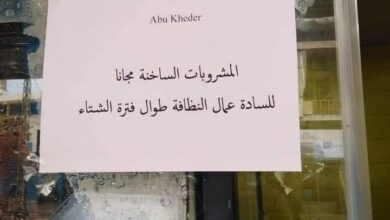 Abu Kheder
المشروبات الساخنة مجانا
للسادة عمال النظافة طوال فترة الشتاء